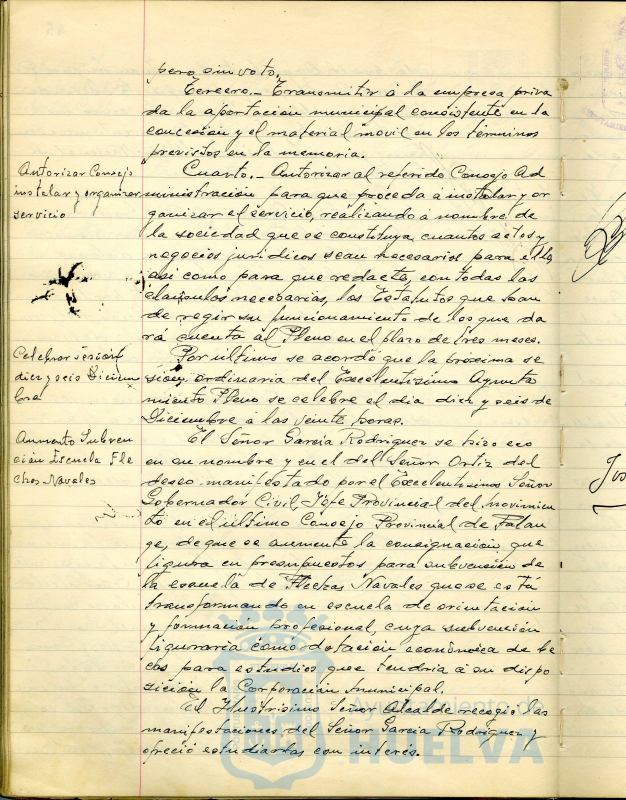 pero sin voto.
Tercero.- Transmitir á la empresa priva
da la aportación municipal consistente en la
concesión y el material movil en los términos
previstos en la memoria.
Autorizar Consejo
instalar y organizar
servicio
Cuarto.- Autorizar al referido Consejo Ad
ministración para que proceda á instalar y or
ganizar el servicio, realizando á nombre de
la sociedad que se constituya cuantos actos y
negocios juridicos sean necesarios para ello,
asi como para que redacte, con todas las
clausulas necesarias, los Estatutos que han
de regir su funcionamiento de los que da
rá cuenta al Pleno en el plazo de tres meses.
Celebrar sesión
diez y seis Diciem
bre
Por último se acordó que la próxima se
sion ordinaria del Excelentísimo Ayunta
miento Pleno se celebre el dia diez y seis de
Diciembre á las veinte horas.
Aumento Subven
ción Escuela Fle
chas Navales
El Señor García Rodriguez se hizo eco
en su nombre y en el del Señor Ortiz del
deseo manifestado por el Excelentísimo Señor
Gobernador Civil, Jefe Provincial del movimien
to en el último Consejo Provincial de Falan
ge, de que se aumente la consignación que
figura en presupuestos para subvención de
la escuela de Flechas Navales que se está
transformando en escuela de orientación
y formación profesional, cuya subvención
figuraria como dotación económica de be
cas para estudios que tendria á su dispo
sición la Corporación municipal.
El Ilustrísimo Señor Alcalde recogió las
manifestaciones del Señor Garcia Rodriguez y
ofreció estudiarlas con interés.
Ayuntamiento de
HUELVA